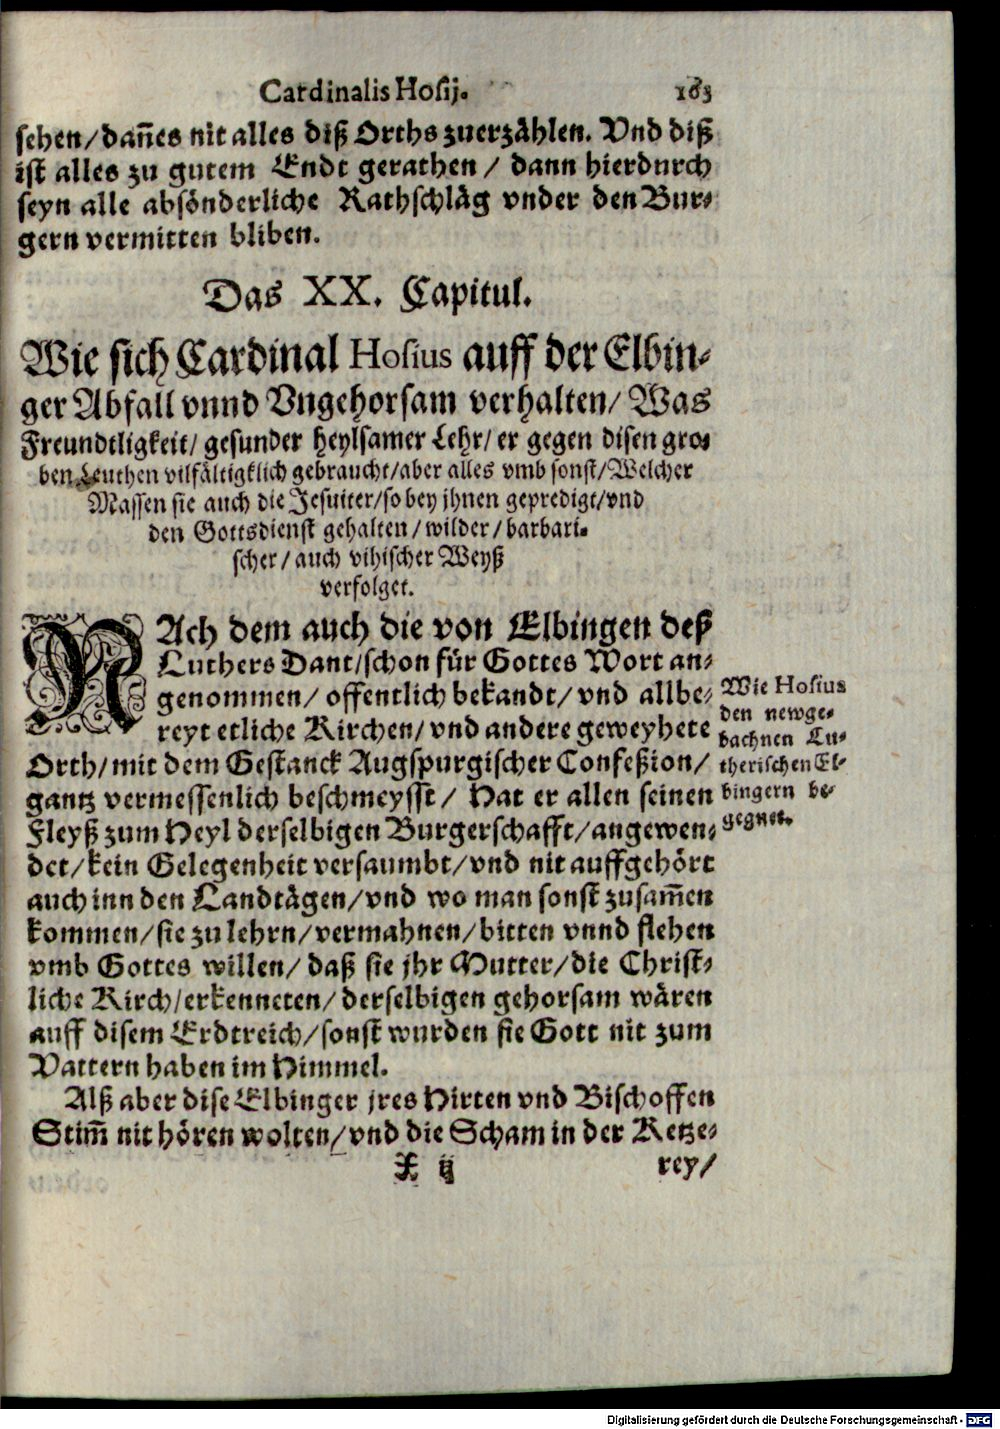 Cardinalis Hosij. 163
sehen/dañes nit alles diß Orths zuerzählen. Vnd diß
ist alles zu gutem Endt gerathen / dann hierdurch
seyn alle absönderliche Rathschläg vnder den Bur-
gern vermitten bliben.
Das XX. Capitul.
Wie sich Cardinal Hosius auff der Elbin-
ger Abfall vnnd Vngehorsam verhalten/ Was
Freundtligkeit/ gesunder heylsamer Lehr/ er gegen disen gro-
ben Leuthen vilfältigklich gebraucht/aber alles vmb sonst/Welcher
Massen sie auch die Jesuiter/so bey jhnen gepredigt/vnd
den Gottsdienst gehalten/wilder/barbari-
scher/auch vihischer Weyß
verfolget.
NAch dem auch die von Elbingen deß
Luthers Dant/schon für Gottes Wort an-
genommen/ offentlich bekandt/ vnd allbe-
reyt etliche Kirchen/vnd andere geweyhete
Orth/mit dem Gestanck Augspurgischer Confeßion/
gantz vermessenlich beschmeysst/ Hat er allen seinen
Fleyß zum Heyl derselbigen Burgerschafft/angewen-
det/kein Gelegenheit versaumbt/vnd nit auffgehört
auch inn den Landtägen/vnd wo man sonst zusam̃en
kommen/sie zu lehrn/vermahnen/bitten vnnd flehen
vmb Gottes willen/ daß sie jhr Mutter/die Christ-
liche Kirch/erkenneten/ derselbigen gehorsam wären
auff disem Erdtreich/sonst wurden sie Gott nit zum
Vattern haben im Himmel.
Alß aber dise Elbinger jres Hirten vnd Bischoffen
Stim̃ nit hören wolten/vnd die Scham in der Ketze-
X ij rey/
Wie Hosius
den newge-
bachnen Lu-
therischen El-
bingern be-
gegnet.
Digitalisierung gefördert durch die Deutsche Forschungsgemeinschaft - DFG